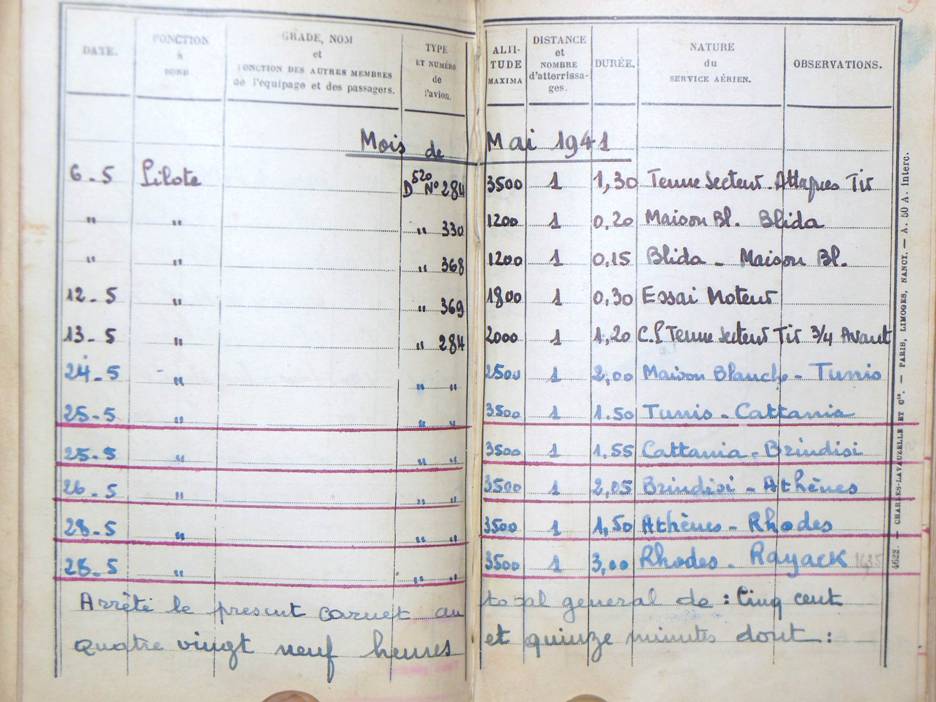 DATE. FONCTION à BORD GRADE, NOM et FONCTION DES AUTRES MEMBRES de l'équipage et des passagers. TYPE ET NUMÉRO de l'avion. ALTITUDE MAXIMA DISTANCE et NOMBRE d'atterrissages. DURÉE. NATURE du SERVICE AÉRIEN. OBSERVATIONS.
Mois de Mai 1941
6-5 Pilote D520 N° 284 3500 1 1,30 Tenue Secteur - Attaques Tir
" " " 330 1200 1 0,20 Maison Bl. Blida
" " " 368 1200 1 0,15 Blida - Maison Bl.
12-5 " " 369 1800 1 0,30 Essai Moteur
13-5 " " 284 2000 1 1,20 C.P Tenue Secteur Tir 3/4 Avant
24-5 " " " 2500 1 2,00 Maison Blanche - Tunis
25-5 " " " 3500 1 1.50 Tunis - Cattania
25-5 " " " 3500 1 1,55 Cattania - Brindisi
26-5 " " " 3500 1 2,05 Brindisi - Athènes
28-5 " " " 3500 1 1,50 Athènes - Rhodes
28-5 " " " 3500 1 3,00 Rhodes - Rayack
Arrêté le présent carnet au total general de : Cinq cent
quatre vingt neuf heures et quinze minutes dont :
CHARLES-LAVAUZELLE ET Cie. — PARIS, LIMOGES, NANCY. — A. 50 A. Interc.